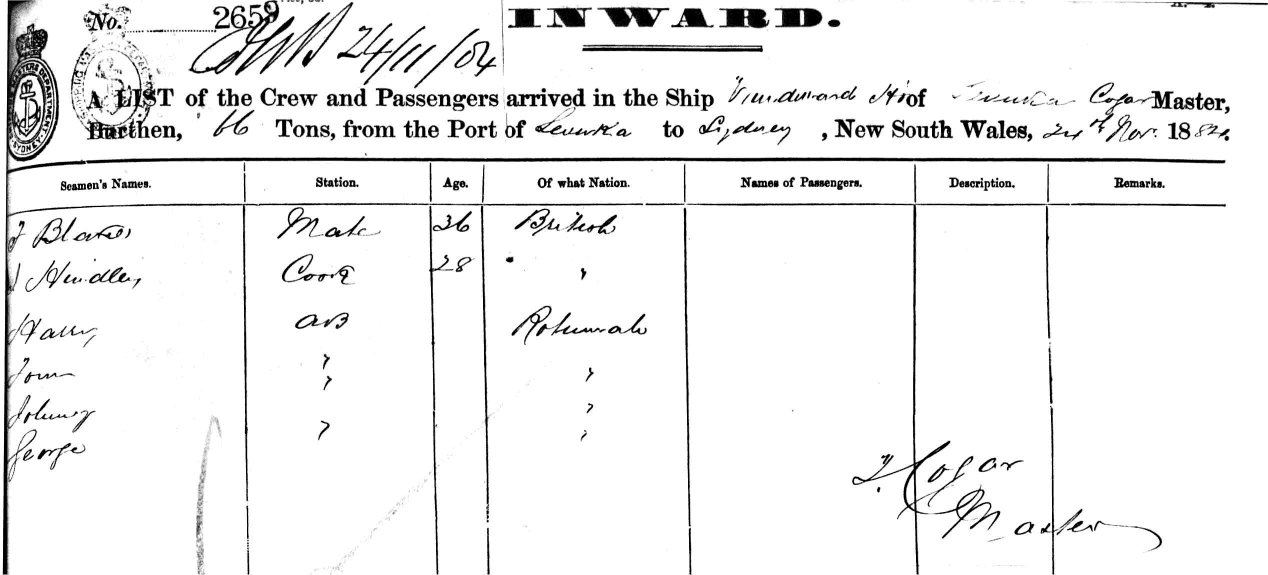 No. 2659
INWARD.
24/11/84
A LIST of the Crew and Passengers arrived in the Ship of Levuka Cogar Master,
Burthen, 66 Tons, from the Port of Levuka to Sydney, New South Wales, 24th Nov. 1884.
Seamen's Names. Station. Age. Of what Nation. Names of Passengers. Description. Remarks.
Mate 36 British
Hindley Cook 28 "
Harry AB Rotumah
Tom " "
Johnny " "
George " "
T. Cogar
Master